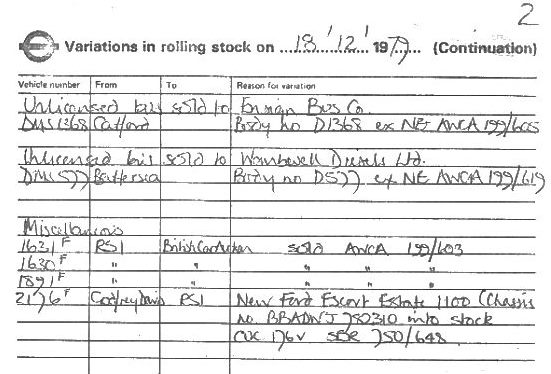 2
Variations in rolling stock on 18/12/1979 (Continuation)
Vehicle number From To Reason for variation
Unlicensed bus sold to Ensign Bus Co.
DMS1368 Catford Body no D1368 ex NE AWCA 199/605
Unlicensed bus sold to Wombwell Diesels Ltd.
DMS577 Battersea Body no D577 ex NE AWCA 199/619
Miscellaneous
1621F RS1 British Car Auction sold AWCA 199/603
1630F " " " " "
1891F " " " " "
2176F Godfrey Davis RS1 New Ford Escort Estate 1100 (Chassis
no. BBADWJ 782310 into stock
176V SBR 750/648